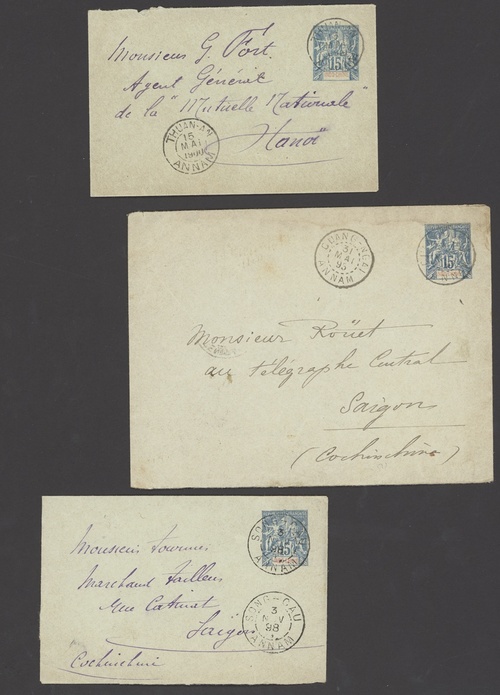 Monsieur G. Fort.
Agent Général
de la "Mutuelle Nationale"
Hanoï
15
THUAN-AN
15
MAI
1900
ANNAM
QUANG-NGAI
31
MAI
95
ANNAM
15
Monsieur Roüet
au télégraphe Central
Saigon
(Cochinchine)
SONG-CAU
3
ANNAM
15
Monsieur Fournier
Marchand Tailleur
Rue Catinat
Saïgon
Cochinchine
SONG-CAU
3
NOV
98
ANNAM